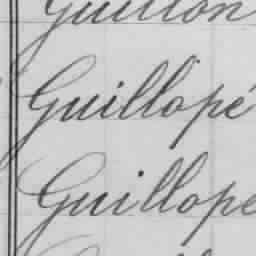 Guillon
Guillopé
Guillope